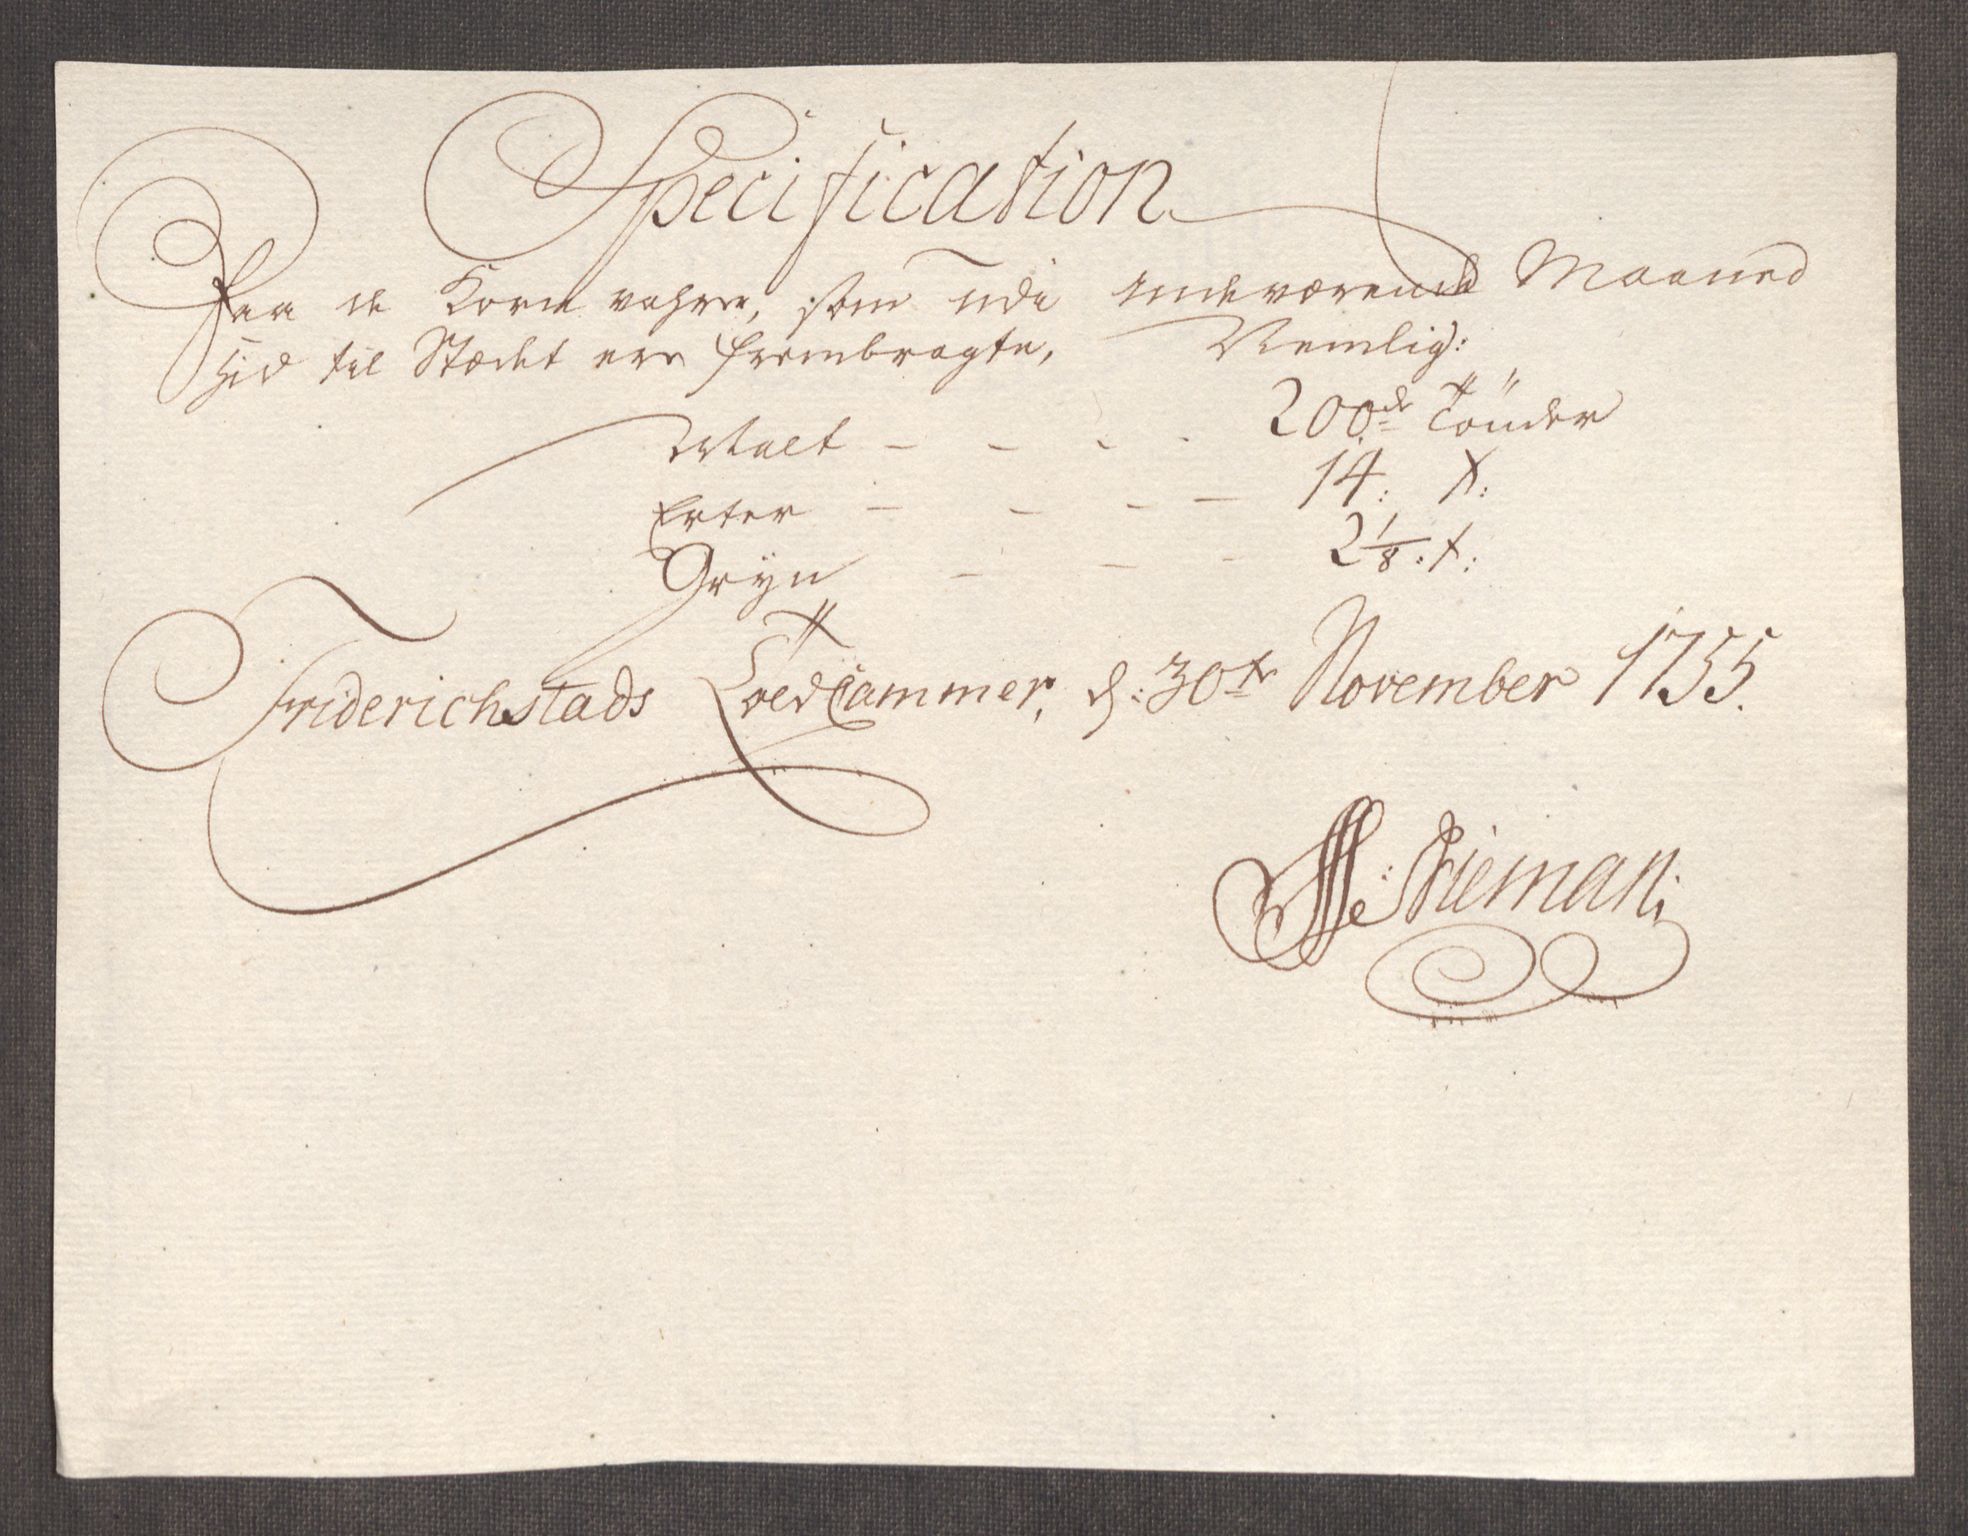 Specification
Paa de Korn vahrer, som udi indeværende Maaned
hid til Stædet ere frembragte, Nemlig:
Malt - - - - 200de Tönder
Erter - - - - 14: t:
Gryn - - - 2 1/8: t:
Friderichstads Toldcammer, d: 30te November 1755.